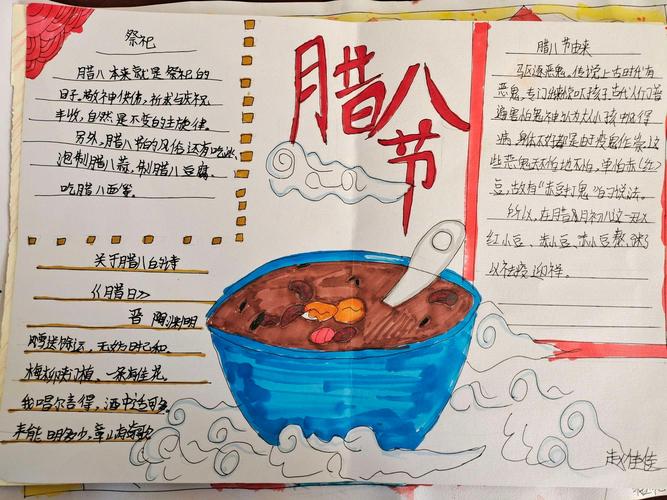 祭祀
腊八本来就是祭祀的
日子。敬神供佛，祈求与庆祝
丰收，自然是不变的主旋律。
另外，腊八节的风俗还有吃冰
泡制腊八蒜，制腊八豆腐
吃腊八面等。
关于腊八的诗
《腊日》
晋 陶渊明
风雪送余运，无妨时已和。
梅柳夹门植，一条有佳花。
我唱尔言得，酒中适何多
未能明多少，章山有奇歌
腊八节
腊八节由来
驱逐恶鬼，传说上古时代有
恶鬼，专门出来惊吓孩子，古代人们普
遍害怕鬼神，认为大人小孩中风得
病、身体不好都是由于疫鬼作祟。这
些恶鬼天不怕地不怕，单怕赤（红）
豆，故有“赤豆打鬼”的说法。
所以，在腊月初八这一天以
红小豆、赤小豆
以祛疫迎祥。
赵佳佳